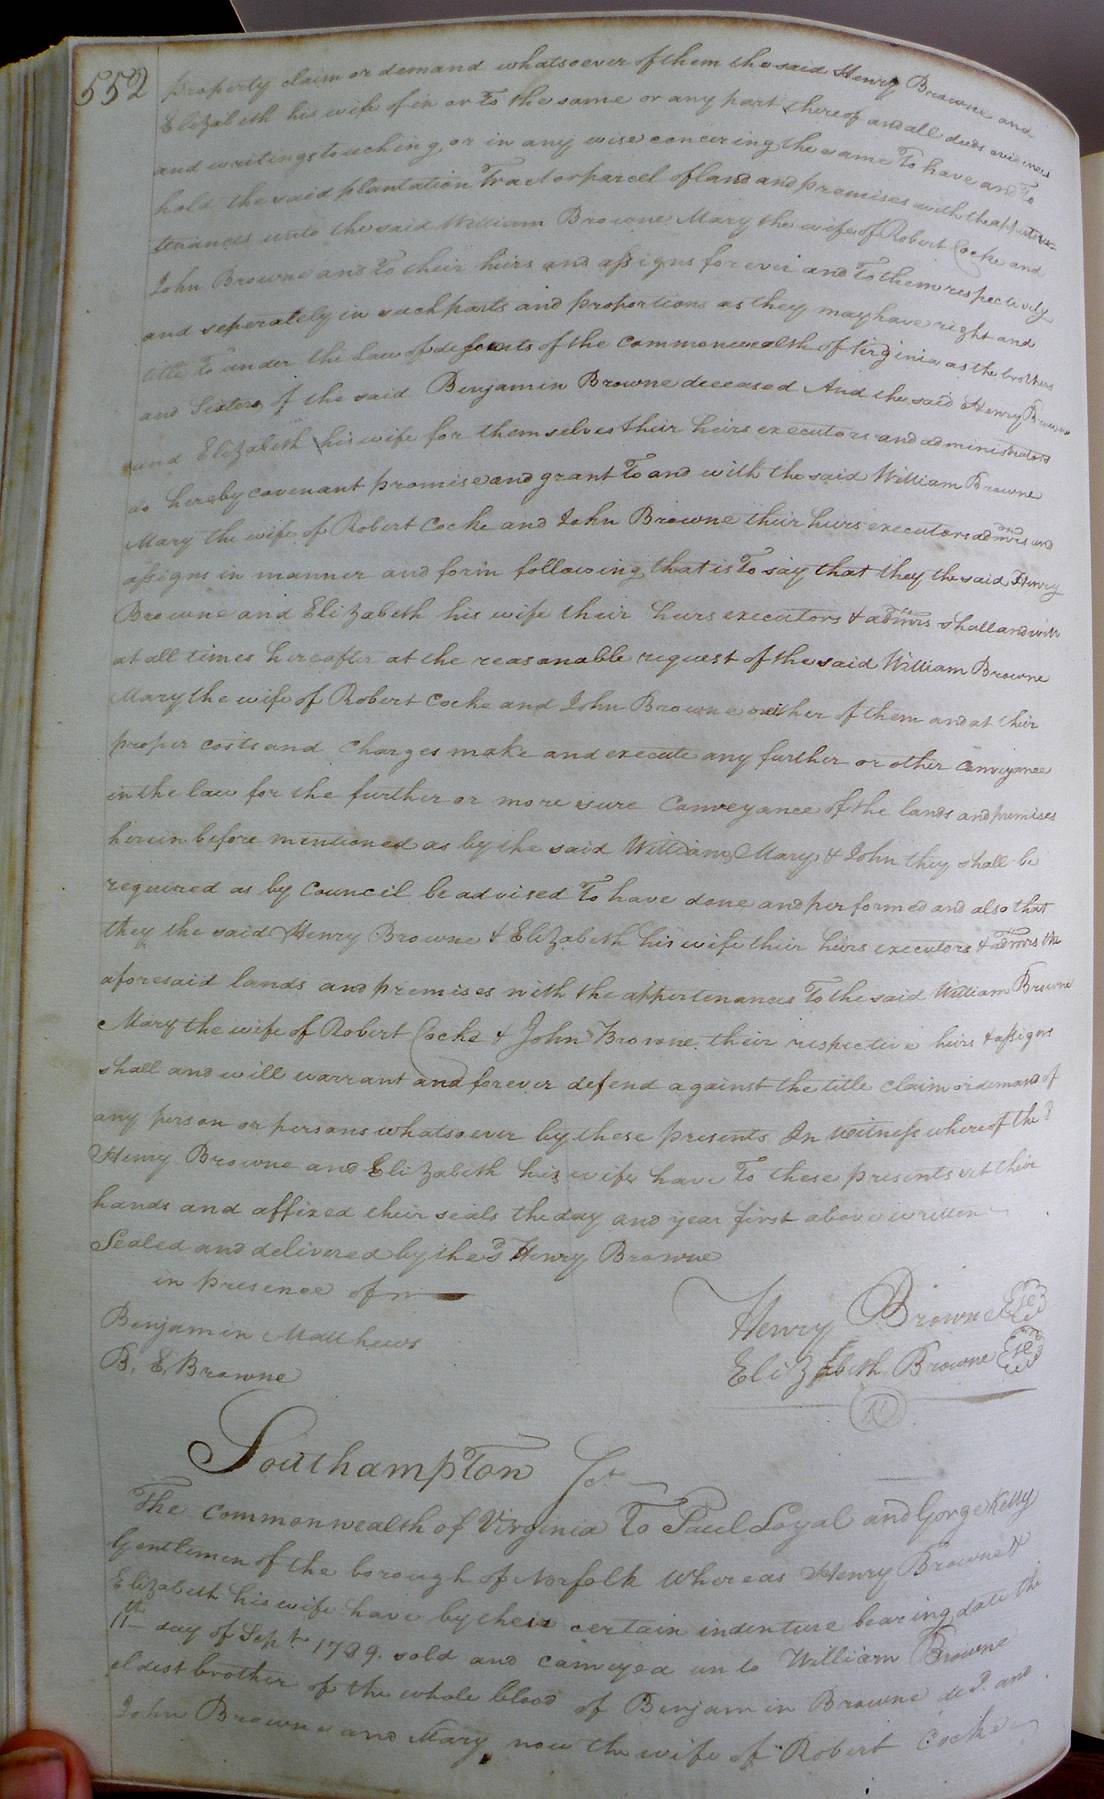 552
property claim or demand whatsoever of them the said Henry Browne and
Elizabeth his wife of in or To the same or any part thereof and all deeds evidences
and writings touching, or in any wise concering the same To have and To
hold the said plantation Tract or parcel of land and premises with the appurte-
tenances unto the said William Browne Mary the wife of Robert Cocke and
John Browne and To their heirs and assigns for ever and To them respectively
and seperately in such parts and proportions as they may have right and
title To under the Law of descents of the Commonwealth of Virginia as the brothers
and Sisters of the said Benjamin Browne deceased And the said Henry Browne
and Elizabeth his wife for themselves their heirs executors and administrators
do hereby covenant promise and grant To and with the said William Browne
Mary the wife of Robert Cocke and John Browne their heirs executors admrs and
assigns in manner and form following, that is To say that they the said Henry
Browne and Elizabeth his wife their heirs executors & admrs shall and will
at all times hereafter at the reasonable request of the said William Browne
Mary the wife of Robert Cocke and John Browne or either of them and at their
proper costs and Charges make and execute any further or other Conveyance
in the law for the further or more sure Conveyance of the lands and premises
herein before mentioned as by the said William, Mary, & John they shall be
required as by Council be advised To have done and performed and also that
they the said Henry Browne & Elizabeth his wife their heirs executors & admrs the
aforesaid lands and premises with the appertenances To the said William Browne
Mary the wife of Robert Cocke & John Browne their respective heirs & assigns
shall and will warrant and forever defend against the title claim or demand of
any person or persons whatsoever by these presents In witness whereof the sd
Henry Browne and Elizabeth his wife have To these presents set their
hands and affixed their seals the day and year first above written
Sealed and delivered by the sd Henry Browne
in presence of
Benjamin Matthews
B. E. Browne
Henry Browne
Elizabeth Browne
Southampton Sct
The Commonwealth of Virginia To Paul Loyal and Gorge Kelly
Gentlemen of the borough of Norfolk Whereas Henry Browne &
Elizabeth his wife have by their certain indenture bearing date the
11th day of Sept 1789. sold and conveyed unto William Browne
eldest brother of the whole blood of Benjamin Browne decd. and
John Browne and Mary now the wife of Robert Cocke